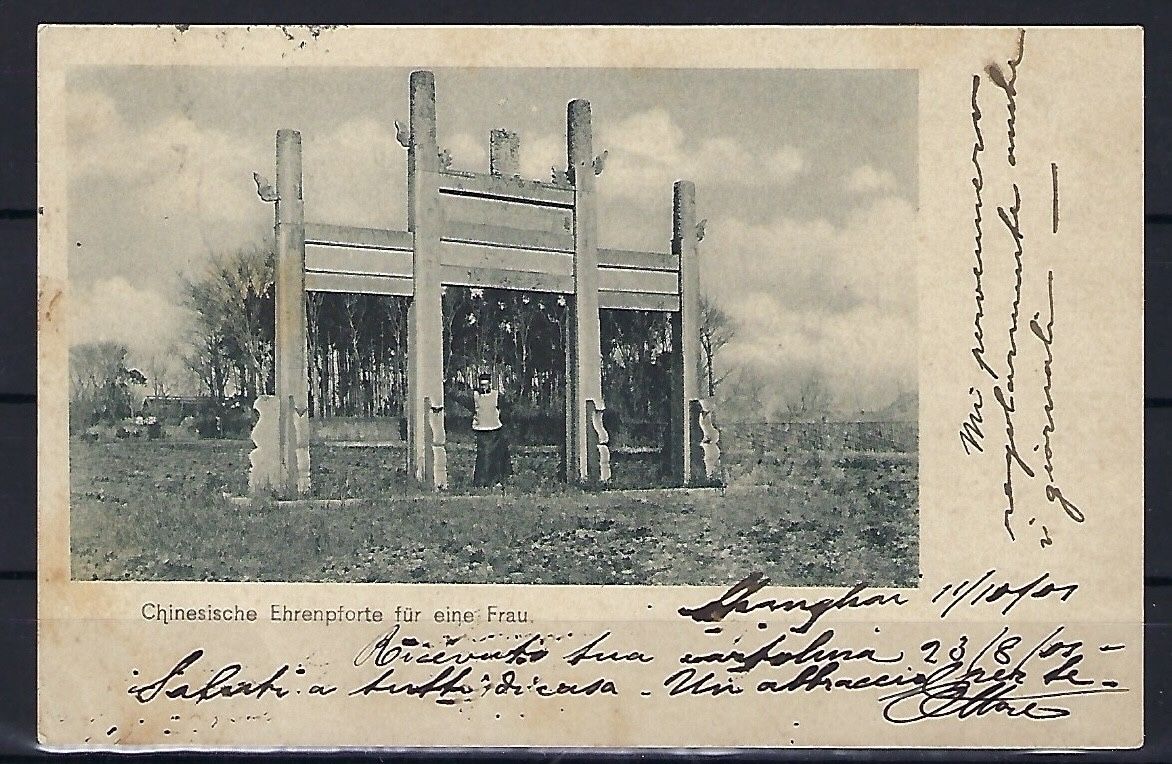 Chinesische Ehrenpforte für eine Frau.
Shanghai 11/10/01
Ricevuto tua cartolina 23/8/01 -
Saluti a tutti di casa - Un abbraccio per te -
Ettore
Mi pervennero
regolarmente anche
i giornali —